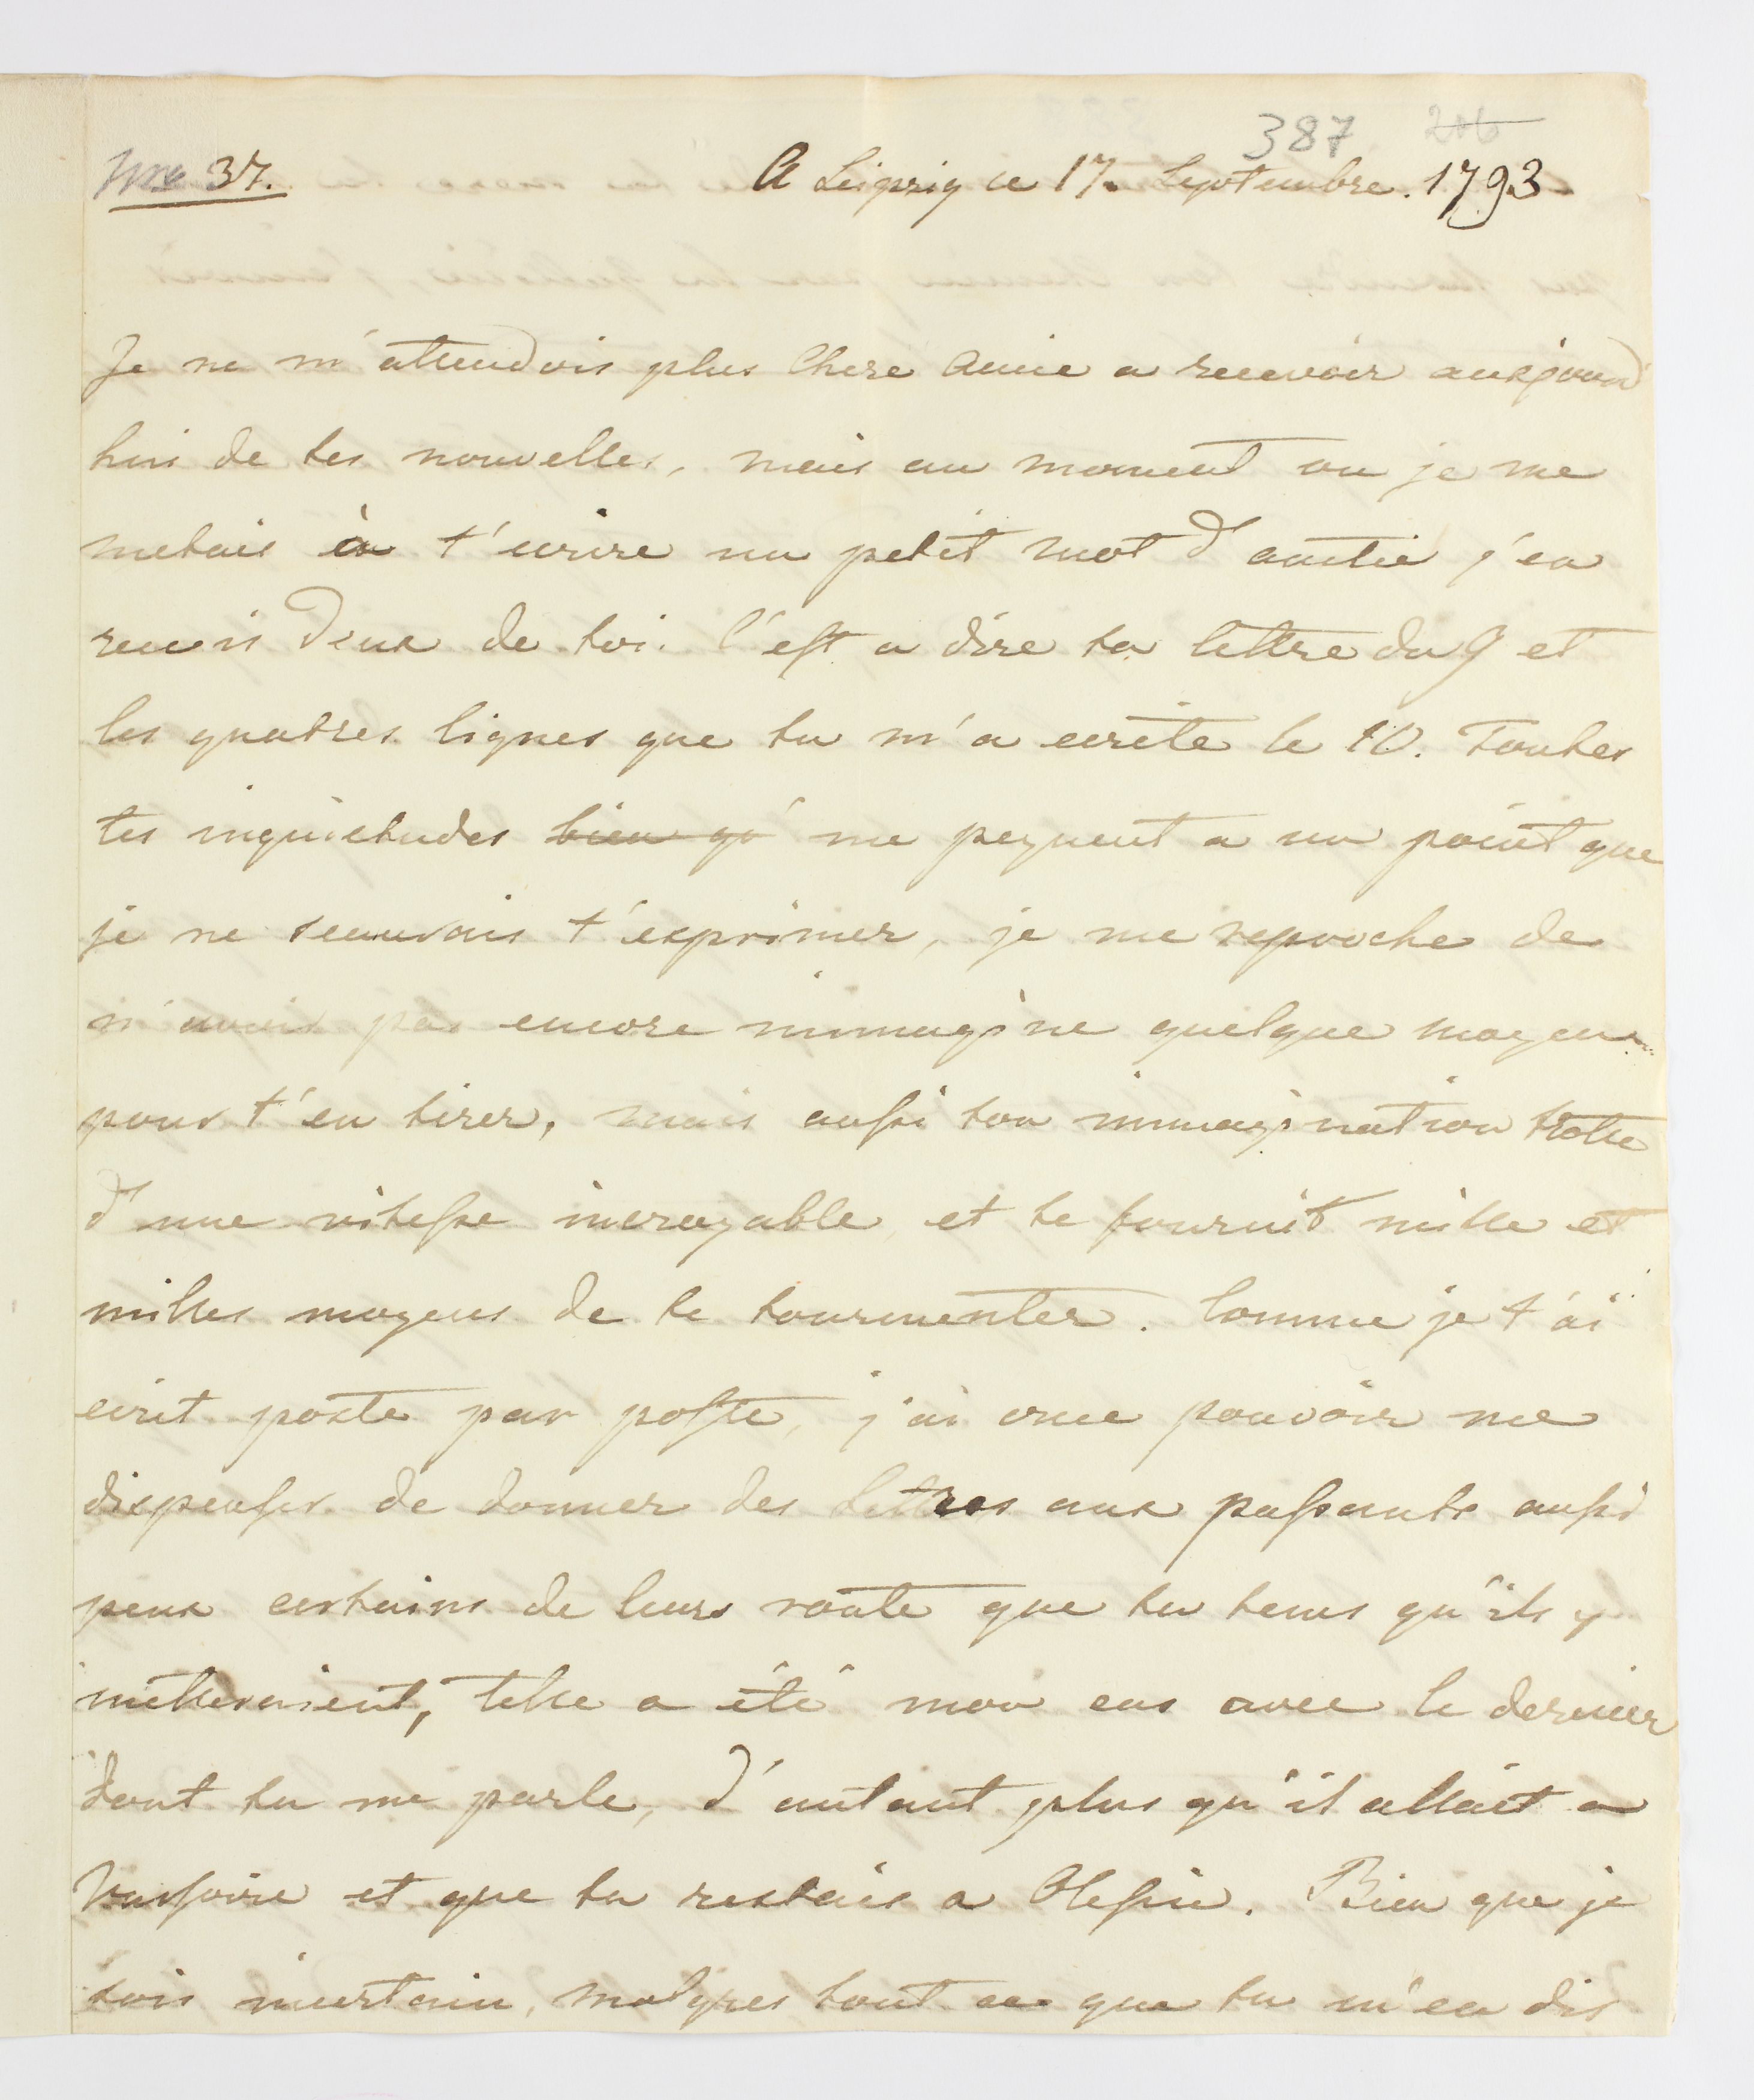 387 206
Nro 37. A Leipzig ce 17. Septembre. 1793
Je ne m'attendois plus Chere Amie a recevoir aujourd'
hui de tes nouvelles, mais au moment ou je me
metais à t'ecrire un petit mot d'amitie j'en
recois deux de toi. C'est a dire ta lettre du 9 et
les quatres lignes que tu m'a ecrite le 10. Toutes
tes inquietudes bien qu' me peynent a un point que
je ne scaurais t'exprimer, je me reproche de
n'avoir pas encore immagine quelque moyen
pour t'en tirer, mais aussi ton immagination trotte
d'une vitesse incroyable et te fournit mille et
milles moyens de te tourmenter. Comme je t'ai
ecrit poste par poste, j'ai cru pouvoir me
dispenser de donner des lettres aux passants aussi
peux certains de leurs route que du tems qu'ils y
metteraient, telle a été mon cas avec le dernier
dont tu me parle, d'autant plus qu'il allait a
Varsovie et que tu restais a Olesin. Bien que je
sois incertain, malgres tout ce que tu m'en dis